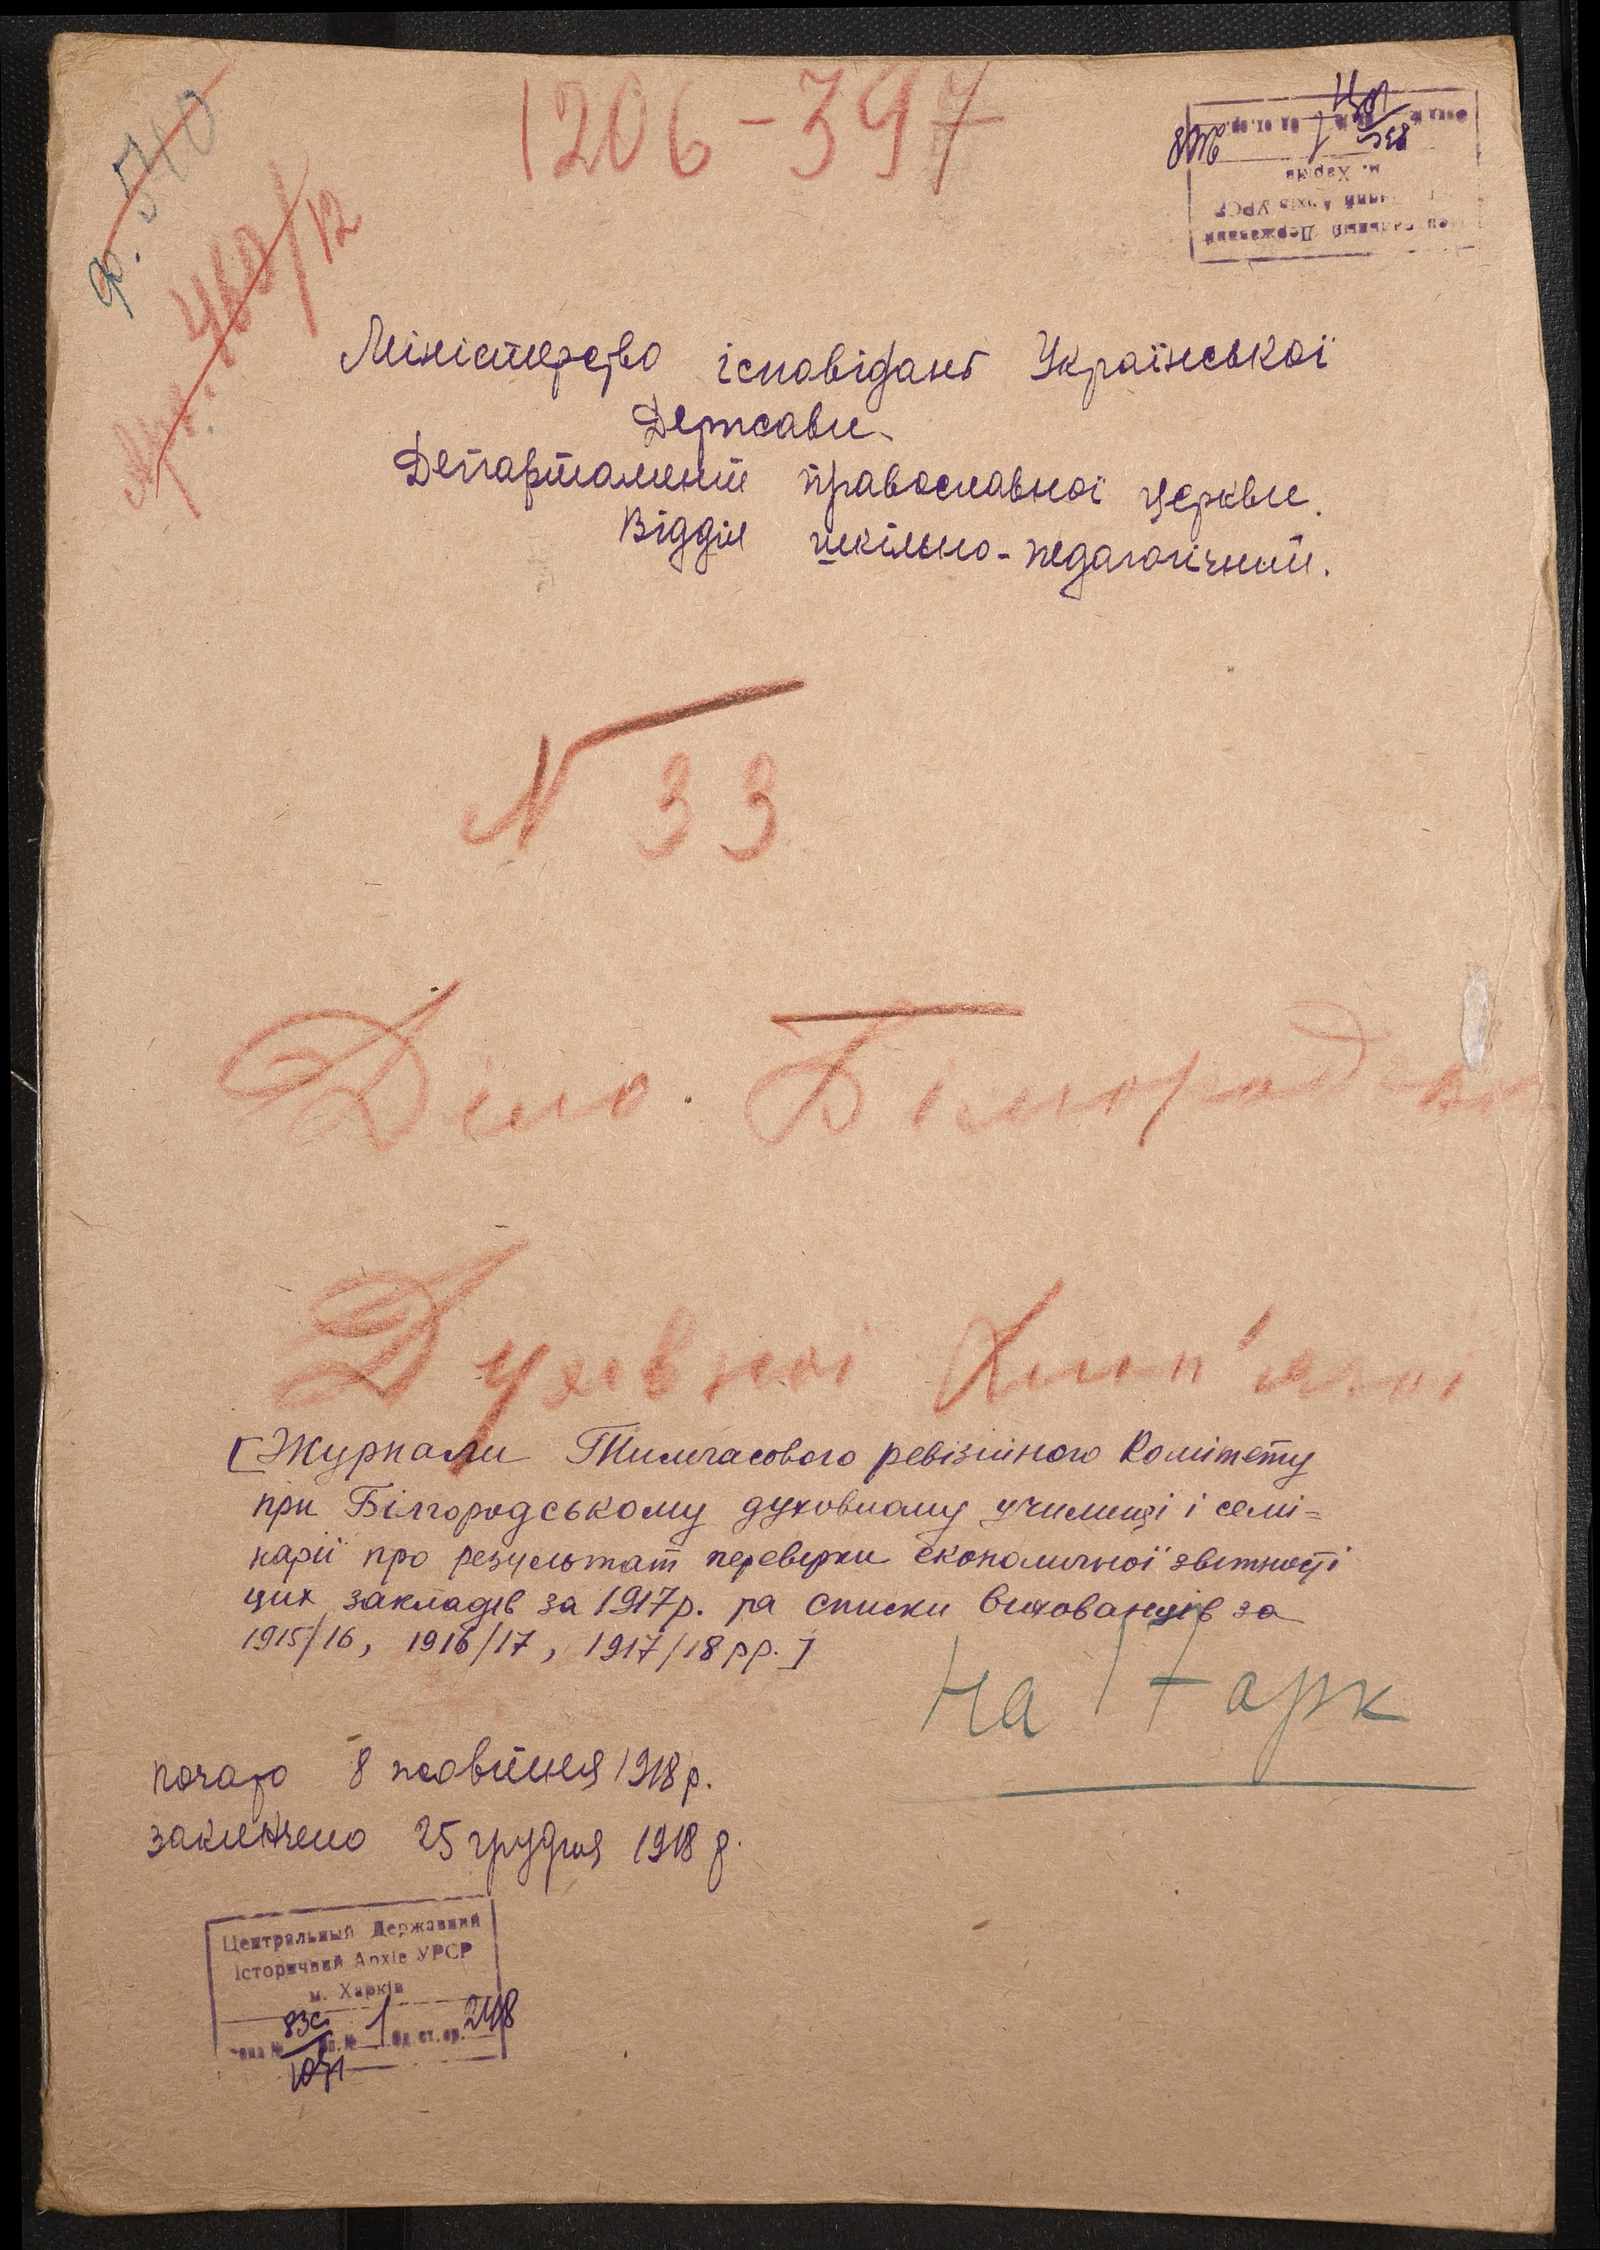 1206-397
ф. 540
арх. 460/12
Міністерство ісповідань Української
Держави
Департамент православної церкви.
Відділ шкільно-педагогічний.
N 33
Діло. Білгородсько
Духовної Хлоп'ячої
[Журнали Тимчасового ревізійного Комітету
при Білгородському духовному училищі і семі=
нарії про результат перевірки економичної звітності
цих закладів за 1917р. та списки вихованців за
1915/16, 1916/17, 1917/18 рр.]
на 17 арк
почато 8 жовтня 1918 р.
закінчено 25 грудня 1918 р.
Центральный Державний
Історичний Архів УРСР
м. Харків
Фонд № 835 оп. № 1 Од. ст. зр. 248
1071